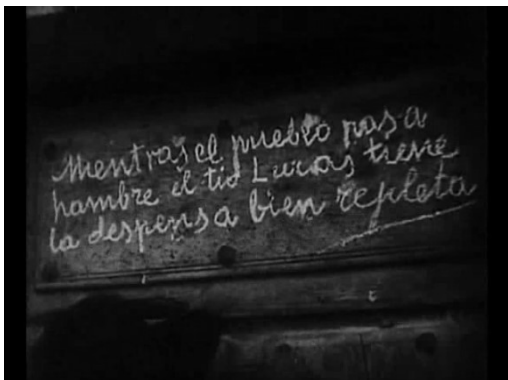 Mientras el pueblo pasa
hambre el tio Lucas tiene
la despensa bien repleta